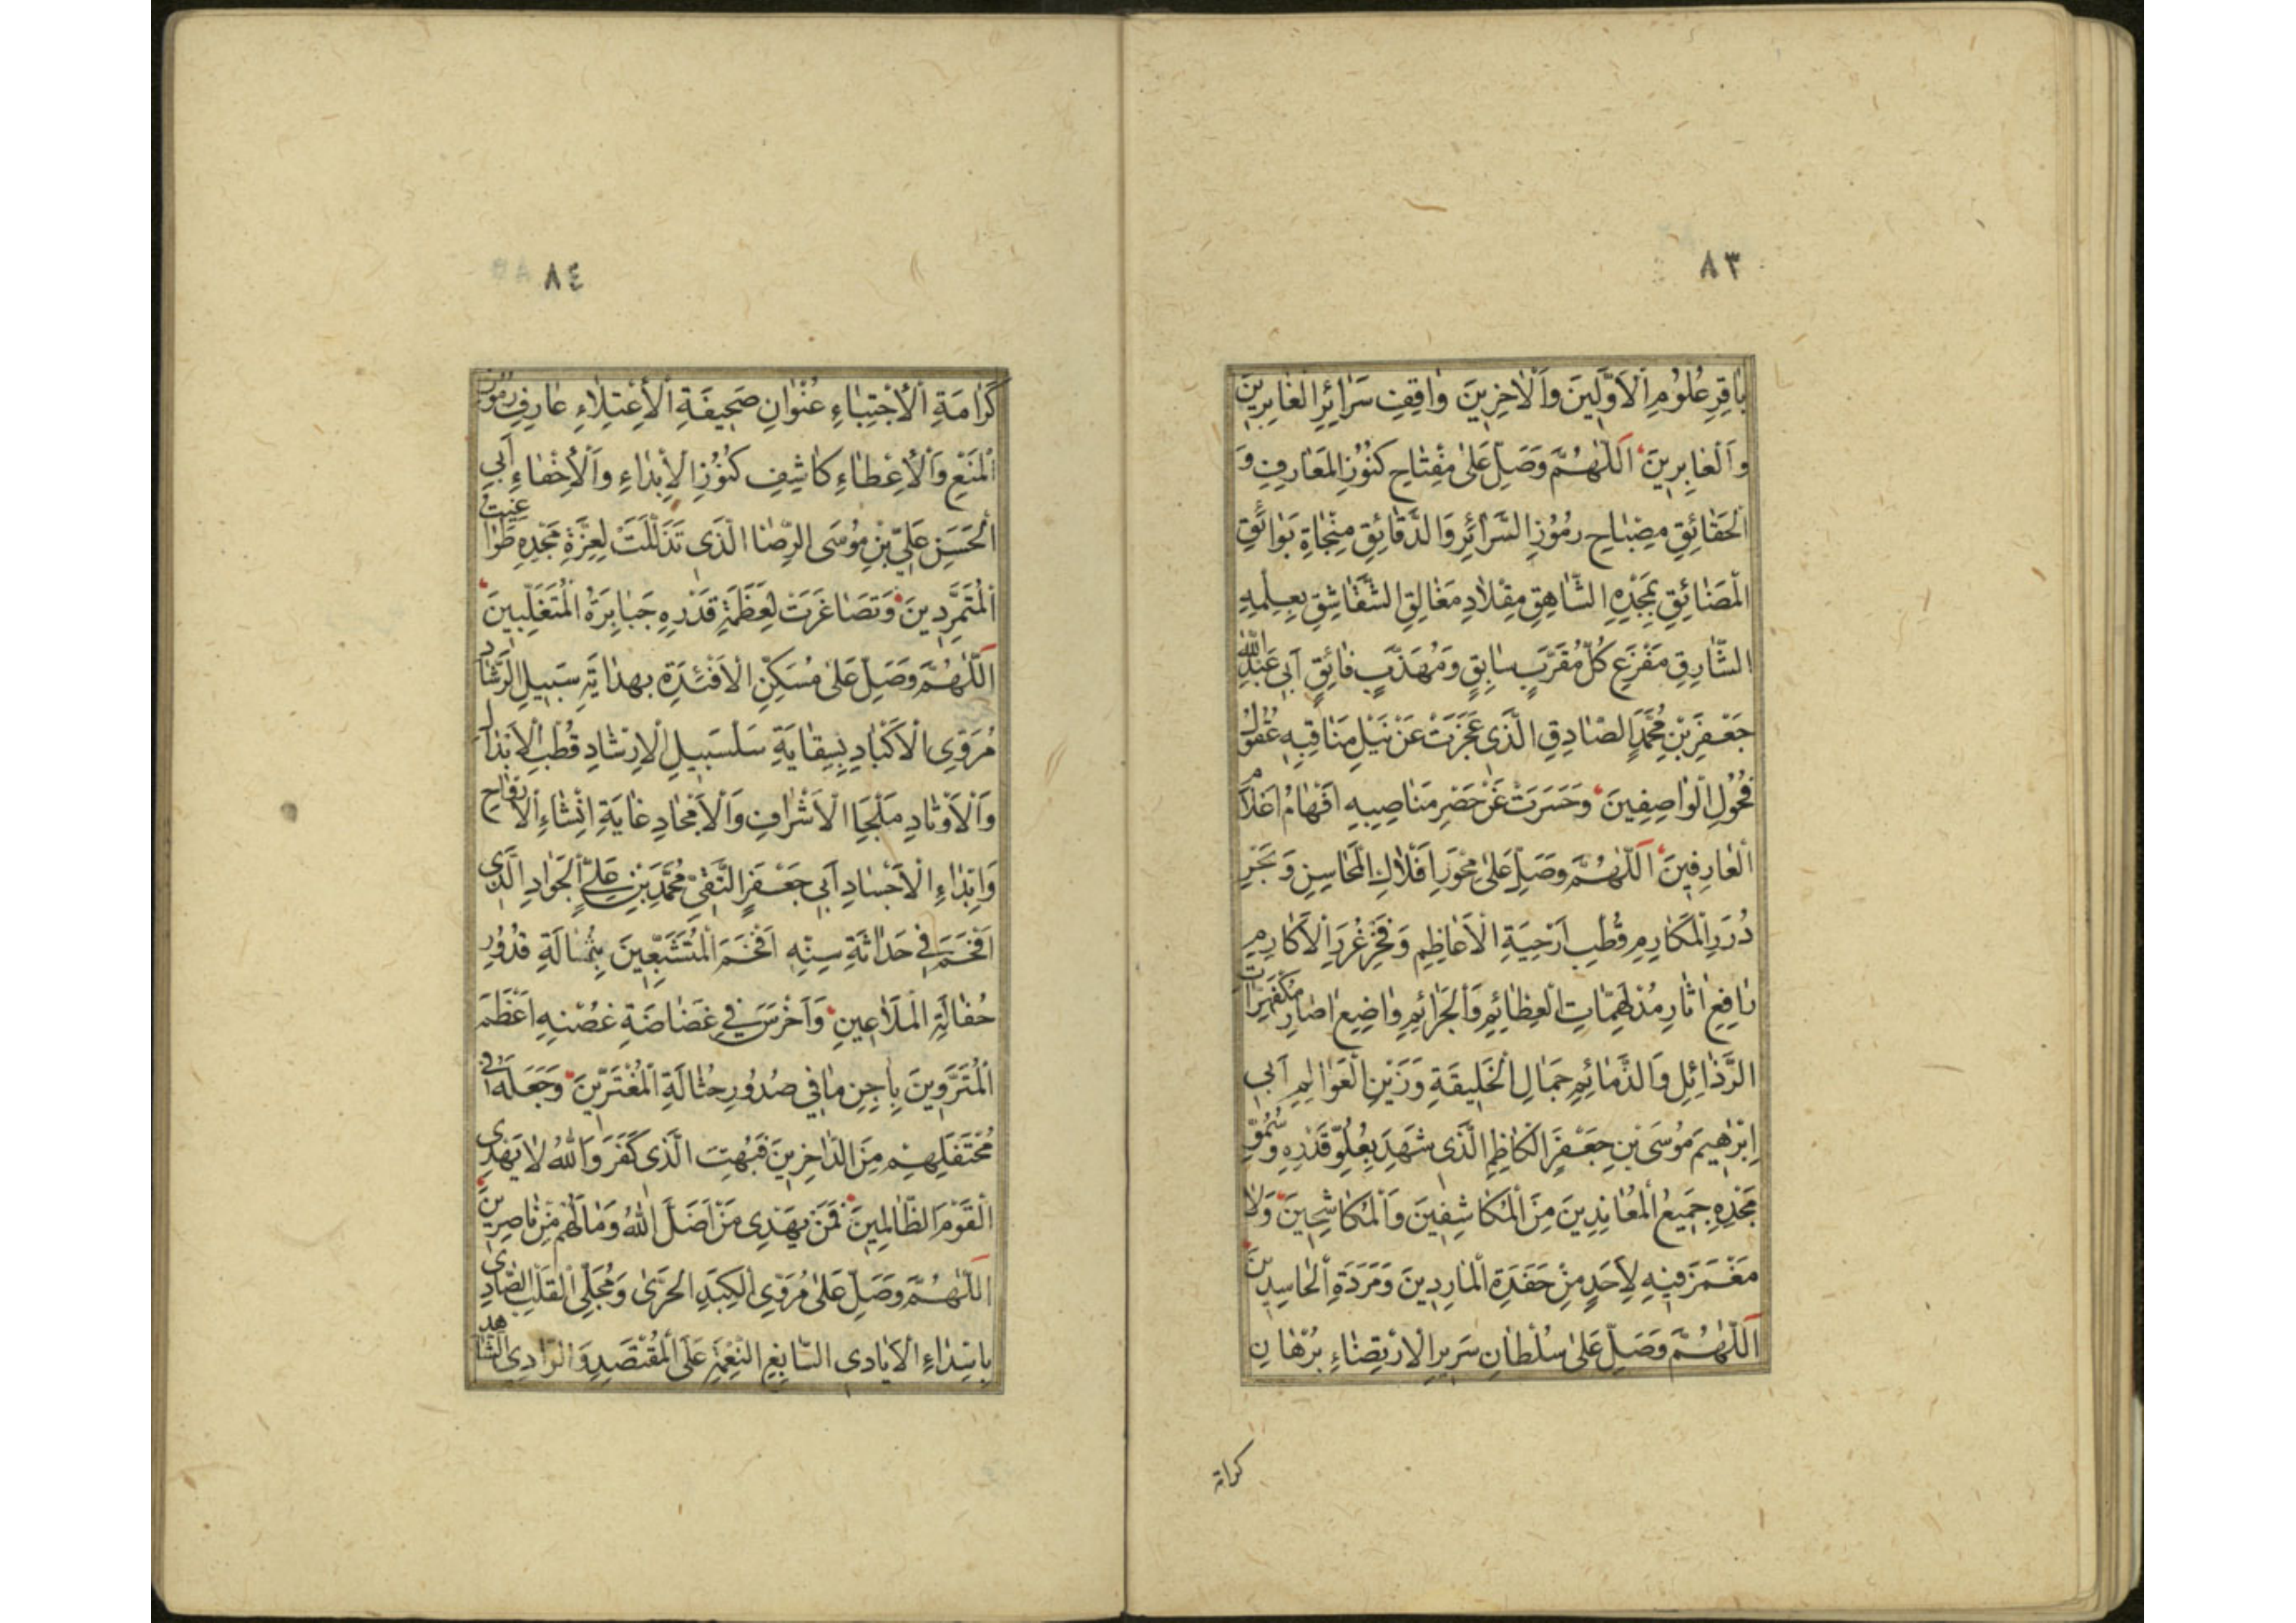 ٨٣
بٰاقِرِ عُلُومِ الْاَوَّلِينَ وَالْاٰخِرِينَ وٰاقِفِ سَرٰائِرِ الْغٰابِرِينَ
وَالْعٰابِرِينَ اَللّٰهُمَّ وَصَلِّ عَلىٰ مِفْتٰاحِ كُنُوزِ الْمَعٰارِفِ وَ
الْحَقٰائِقِ مِصْبٰاحِ رُمُوزِ السَّرٰائِرِ وَالدَّقٰائِقِ مِنْجٰاةِ بَوٰائِقِ
الْمَضٰائِقِ بِمَجْدِهِ الشّٰاهِقِ مِقْلٰادِ مَغٰالِقِ الشَّقٰاشِقِ بِعِلْمِهِ
الشّٰارِقِ مَفْزَعِ كُلِّ مُقَرَّبٍ سٰابِقٍ وَمُهَذَّبٍ فٰائِقٍ اَبِي عَبْدِ اللّٰهِ
جَعْفَرِ بْنِ مُحَمَّدٍ الصّٰادِقِ الَّذِى عَجَزَتْ عَنْ نَيْلِ مَنٰاقِبِهِ عُقُولُ
فُحُولِ الْوٰاصِفِينَ وَحَسَرَتْ عَنْ حَصْرِ مَنٰاصِبِهِ اَفْهٰامُ اَعْلٰامِ
الْعٰارِفِينَ اَللّٰهُمَّ وَصَلِّ عَلىٰ مِحْوَرِ اَفْلٰاكِ الْمَحٰاسِنِ وَبَحْرِ
دُرَرِ الْمَكٰارِمِ قُطْبِ اَرْحِيَةِ الْاَعٰاظِمِ وَفَخْرِ غُرَرِ الْاَكٰارِمِ
رٰافِعِ اٰثٰارِ مُدْلَهِمّٰاتِ الْعَظٰائِمِ وَالْجَرٰائِمِ وٰاضِعِ اٰصٰارِ مُكْفَهِرّٰاتِ
الرَّذٰائِلِ وَالذَّمٰائِمِ جَمٰالِ الْخَلِيقَةِ وَزَيْنِ الْعَوٰالِمِ اَبِي
اِبْرٰهِيمَ مُوسَى بْنِ جَعْفَرٍ الْكٰاظِمِ الَّذِى شَهِدَ بِعُلُوِّ قَدْرِهِ وَسُمُوِّ
مَجْدِهِ جَمِيعُ الْمُعٰانِدِينَ مِنَ الْمُكٰاشِفِينَ وَالْمُكٰاشِحِينَ وَلٰا
مَغْمَزَ فِيهِ لِاَحَدٍ مِنْ حَفَدَةِ الْمٰارِدِينَ وَمَرَدَةِ الْحٰاسِدِينَ
اَللّٰهُمَّ وَصَلِّ عَلىٰ سُلْطٰانِ سَرِيرِ الْاِرْتِضٰاءِ بُرْهٰانِ
كرامة
٨٤
كَرٰامَةِ الْاِجْتِبٰاءِ عُنْوٰانِ صَحِيفَةِ الْاِعْتِلٰاءِ عٰارِفِ رُمُوزِ
الْمَنْعِ وَالْاِعْطٰاءِ كٰاشِفِ كُنُوزِ الْاِبْدٰاءِ وَالْاِخْفٰاءِ اَبِي
الْحَسَنِ عَلِيِّ بْنِ مُوسَى الرِّضٰا الَّذِى تَذَلَّلَتْ لِعِزَّةِ مَجْدِهِ طَوٰاغِيتُ
الْمُتَمَرِّدِينَ وَتَصٰاغَرَتْ لِعَظَمَةِ قَدْرِهِ جَبٰابِرَةُ الْمُتَغَلِّبِينَ
اَللّٰهُمَّ وَصَلِّ عَلىٰ مُسَكِّنِ الْاَفْئِدَةِ بِهِدٰايَةِ سَبِيلِ الرَّشٰادِ
مُرَوِّى الْاَكْبٰادِ بِسِقٰايَةِ سَلْسَبِيلِ الْاِرْشٰادِ قُطْبِ الْاَبْدٰالِ
وَالْاَوْتٰادِ مَلْجَإِ الْاَشْرٰافِ وَالْاَمْجٰادِ غٰايَةِ اِنْشٰاءِ الْاَرْوٰاحِ
وَاِبْدٰاءِ الْاَجْسٰادِ اَبِي جَعْفَرٍ التَّقِيِّ مُحَمَّدِ بْنِ عَلِيٍّ الْجَوٰادِ الَّذِى
اَفْحَمَ فِي حَدٰاثَةِ سِنِّهِ اَفْخَمَ الْمُتَشَبِّعِينَ بِثُمٰالَةِ قُدُورِ
حُفٰالَةِ الْمَلٰاعِينِ وَاَخْرَسَ فِي غَضٰاضَةِ غُصْنِهِ اَعْظَمَ
الْمُتَرَوِّينَ بِاٰجِنِ مٰا فِي صُدُورِ حُثٰالَةِ الْمُغْتَرِّينَ وَجَعَلَهُ فِي
مُحْتَفَلِهِمْ مِنَ الدّٰاخِرِينَ فَبُهِتَ الَّذِى كَفَرَ وَاللّٰهُ لٰا يَهْدِى
الْقَوْمَ الظّٰالِمِينَ فَمَنْ يَهْدِى مَنْ اَضَلَّ اللّٰهُ وَمٰا لَهُمْ مِنْ نٰاصِرِينَ
اَللّٰهُمَّ وَصَلِّ عَلىٰ مُرَوِّى الْكَبِدِ الْحَرّٰى وَمُجَلِّى الْقَلْبِ الصّٰادِى
بِاِسْدٰاءِ الْاَيٰادِى السّٰابِغِ النِّعْمَةِ عَلَى الْمُقْتَصِدِ وَالرّٰادِى الشّٰاهِدِ